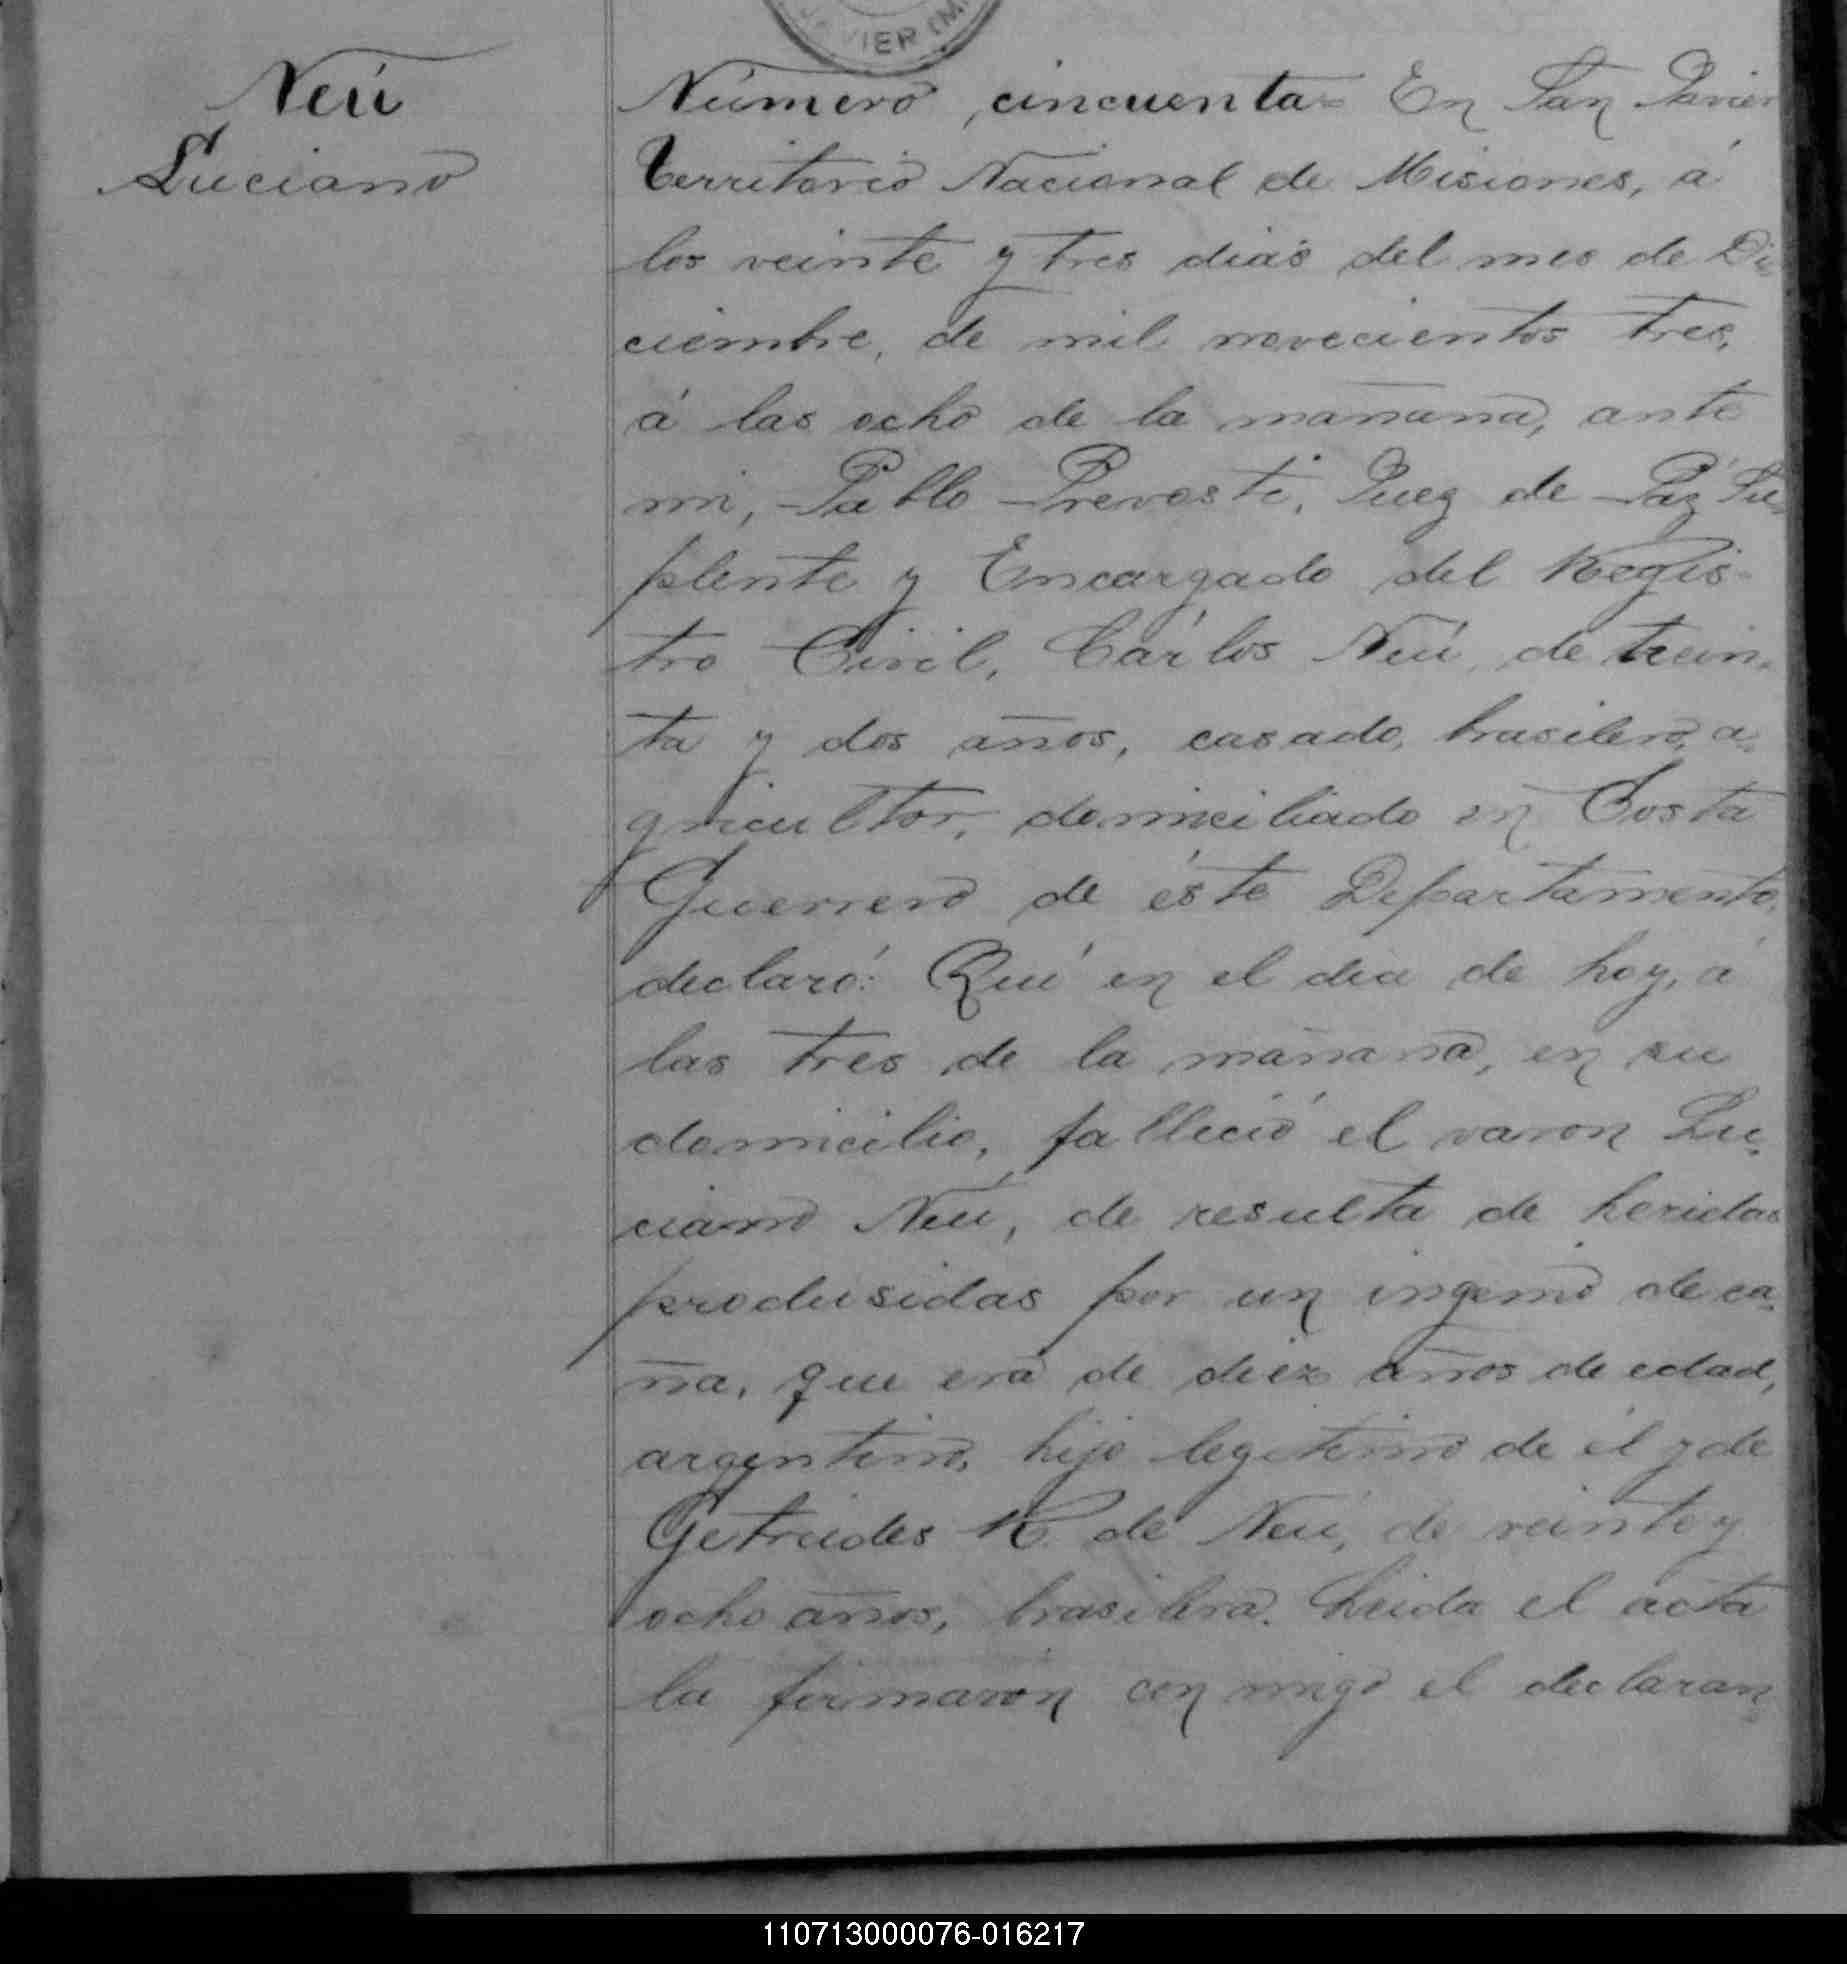 VIER (M
Neú
Luciano
Número cincuenta= En San Javier
Territorio Nacional de Misiones, á
los veinte y tres dias del mes de Di-
ciembre, de mil novecientos tres,
á las ocho de la mañana, ante
mi, Pablo Prevosti, Juez de Paz Su-
plente y Encargado del Regis-
tro Civil, Cárlos Neú, de trein-
ta y dos años, casado, brasilero, a-
gricultor, domiciliado en Costa
Guerrero de éste Departamento,
declaró: Qué en el dia de hoy, á
las tres de la mañana, en su
domicilio, falleció el varon Lu-
ciano Neú, de resulta de heridas
produsidas por un ingenio de ca-
ña, que era de diez años de edad,
argentino, hijo legitimo de él y de
Getrudes K. de Neú, de veinte y
ocho años, brasilera. Leida el acta
la firmaron con migo el declaran-
110713000076-016217